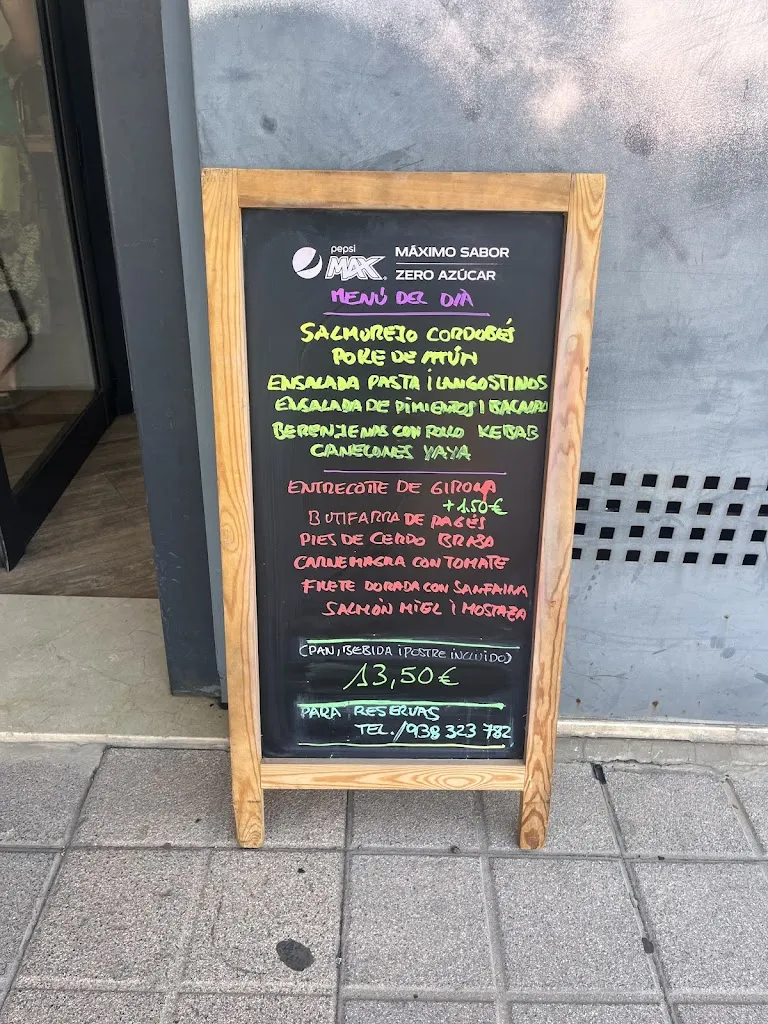 pepsi
MAX
MÁXIMO SABOR
ZERO AZÚCAR
MENÚ DEL DIA
SALMOREJO CORDOBÉS
POKE DE ATÚN
ENSALADA PASTA i LANGOSTINOS
ENSALADA DE PIMIENTOS I BACALAO
BERENJENAS CON POLLO KEBAB
CANELONES YAYA
ENTRECOTTE DE GIRONA
+1.50€
BUTIFARRA DE PAGÉS
PIES DE CERDO BRASA
CARNE MAGRA CON TOMATE
FILETE DORADA CON SANFAINA
SALMÓN MIEL I MOSTAZA
(PAN, BEBIDA i POSTRE INCLUIDO)
13,50€
PARA RESERVAS
TEL./938 323 782